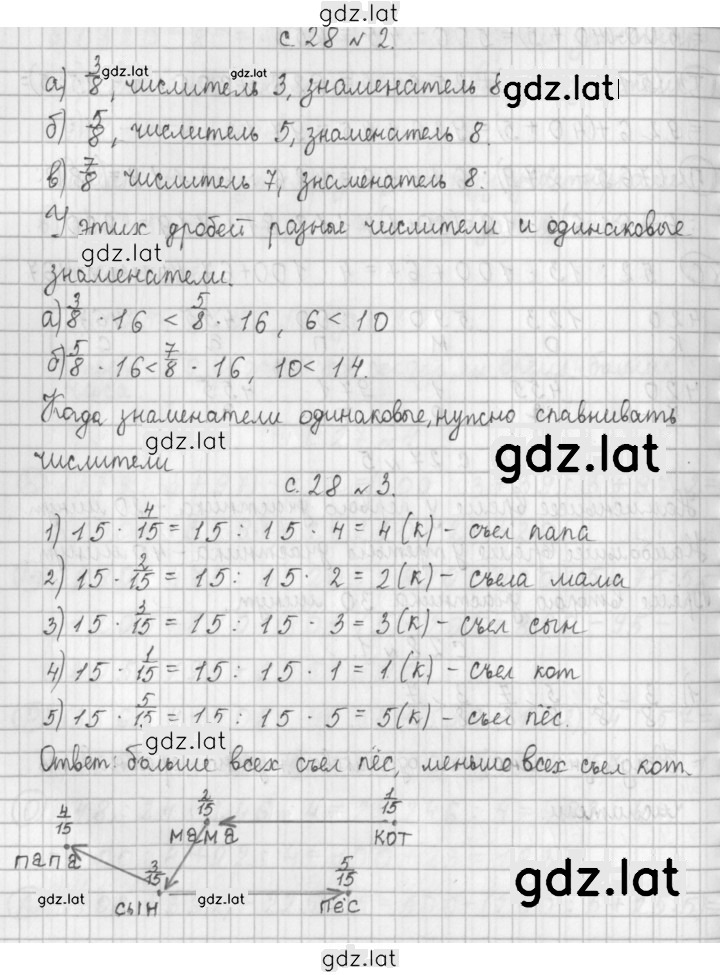 gdz.lat
с. 28 № 2.
а) 3/8, числитель 3, знаменатель 8
gdz.lat gdz.lat gdz.lat
б) 5/8, числитель 5, знаменатель 8.
в) 7/8 числитель 7, знаменатель 8.
У этих дробей разные числители и одинаковые
gdz.lat
знаменатели.
а) 3/8 · 16 < 5/8 · 16, 6 < 10
б) 5/8 · 16 < 7/8 · 16, 10 < 14.
Когда знаменатели одинаковые, нужно спавнивать
gdz.lat gdz.lat
числители
с. 28 № 3.
1) 15 · 4/15 = 15 : 15 · 4 = 4 (к) - съел папа
2) 15 · 2/15 = 15 : 15 · 2 = 2 (к) - съела мама
3) 15 · 3/15 = 15 : 15 · 3 = 3 (к) - съел сын
4) 15 · 1/15 = 15 : 15 · 1 = 1 (к) - съел кот
5) 15 · 5/15 = 15 : 15 · 5 = 5 (к) - съел пёс.
gdz.lat
Ответ: больше всех съел пёс, меньше всех съел кот.
4/15 2/15 1/15
папа мама кот
3/15 5/15
сын пёс
gdz.lat gdz.lat gdz.lat
gdz.lat